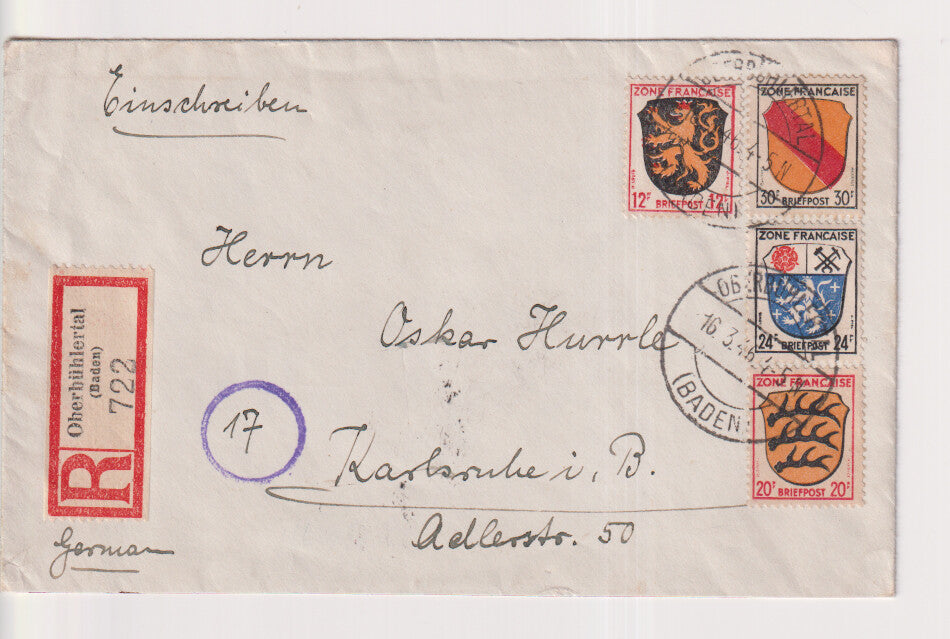 Einschreiben
ZONE FRANÇAISE
12F BRIEFPOST 12F
ZONE FRANÇAISE
30F BRIEFPOST 30F
ZONE FRANÇAISE
24F BRIEFPOST 24F
ZONE FRANÇAISE
20F BRIEFPOST 20F
16.3.46.4-5N
(BADEN)
Herrn
Oskar Hurrle
17
Karlsruhe i. B.
Adlerstr. 50
R
Oberbühlertal
(Baden)
722
German